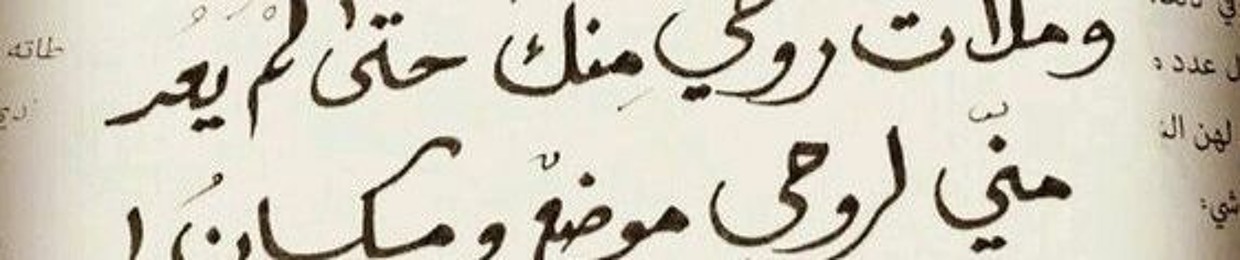 وملأت روحي منك حتى لم يعد
منّي لروحي موضعٌ ومكانُ !
طاته
ل عدده
لهن الـ
شيء